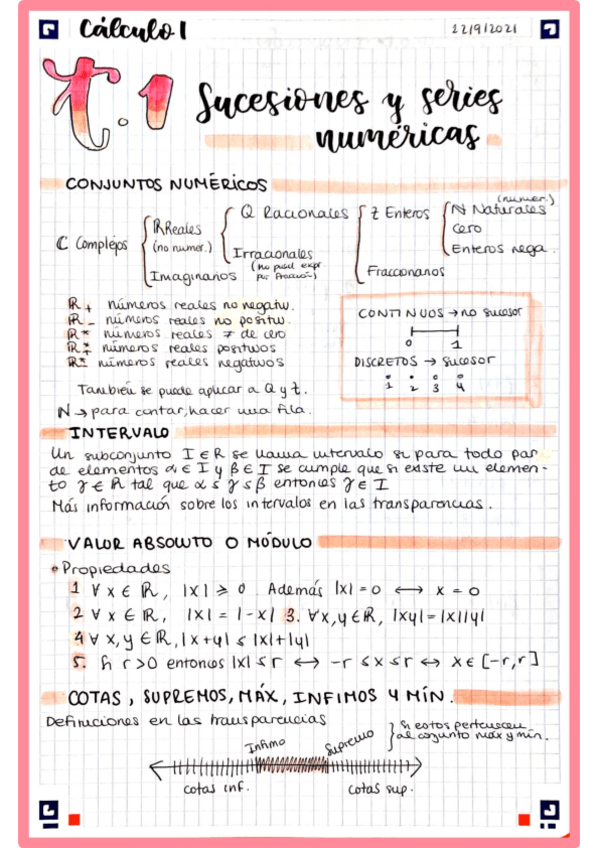 Cálculo 1
22/9/2021
t.1 Sucesiones y series
numéricas
CONJUNTOS NUMÉRICOS
ℂ Complejos
ℝ Reales
(no numer.)
Imaginarios
Q Racionales
Irracionales
(no pued expr
por fracción)
Z Enteros
Fraccionarios
(numer.)
N Naturales
Cero
Enteros nega.
ℝ+ números reales no negativ.
ℝ- números reales no positiv.
ℝ* números reales ≠ de cero
ℝ*+ números reales positivos
ℝ*- números reales negativos
También se puede aplicar a Q y Z.
N → para contar, hacer una fila.
CONTINUOS → no sucesor
0 1
DISCRETOS → sucesor
1 2 3 4
INTERVALO
Un subconjunto I ∈ R se llama intervalo si para todo par
de elementos α ∈ I y β ∈ I se cumple que si existe un elemen-
to γ ∈ ℝ tal que α ≤ γ ≤ β entonces γ ∈ I
Más información sobre los intervalos en las transparencias.
VALOR ABSOLUTO O MÓDULO
• Propiedades
1 ∀ x ∈ ℝ, |x| ≥ 0 Además |x| = 0 ⟷ x = 0
2 ∀ x ∈ ℝ, |x| = |-x| 3. ∀x,y ∈ ℝ, |xy| = |x||y|
4 ∀ x,y ∈ ℝ, |x+y| ≤ |x|+|y|
5. Si r>0 entonces |x| ≤ r ⟷ -r ≤ x ≤ r ⟷ x ∈ [-r,r]
COTAS, SUPREMOS, MÁX, INFIMOS Y MÍN.
Definiciones en las transparencias
Si estos pertenecen
al conjunto máx y mín.
Infimo
Supremo
cotas inf.
cotas sup.